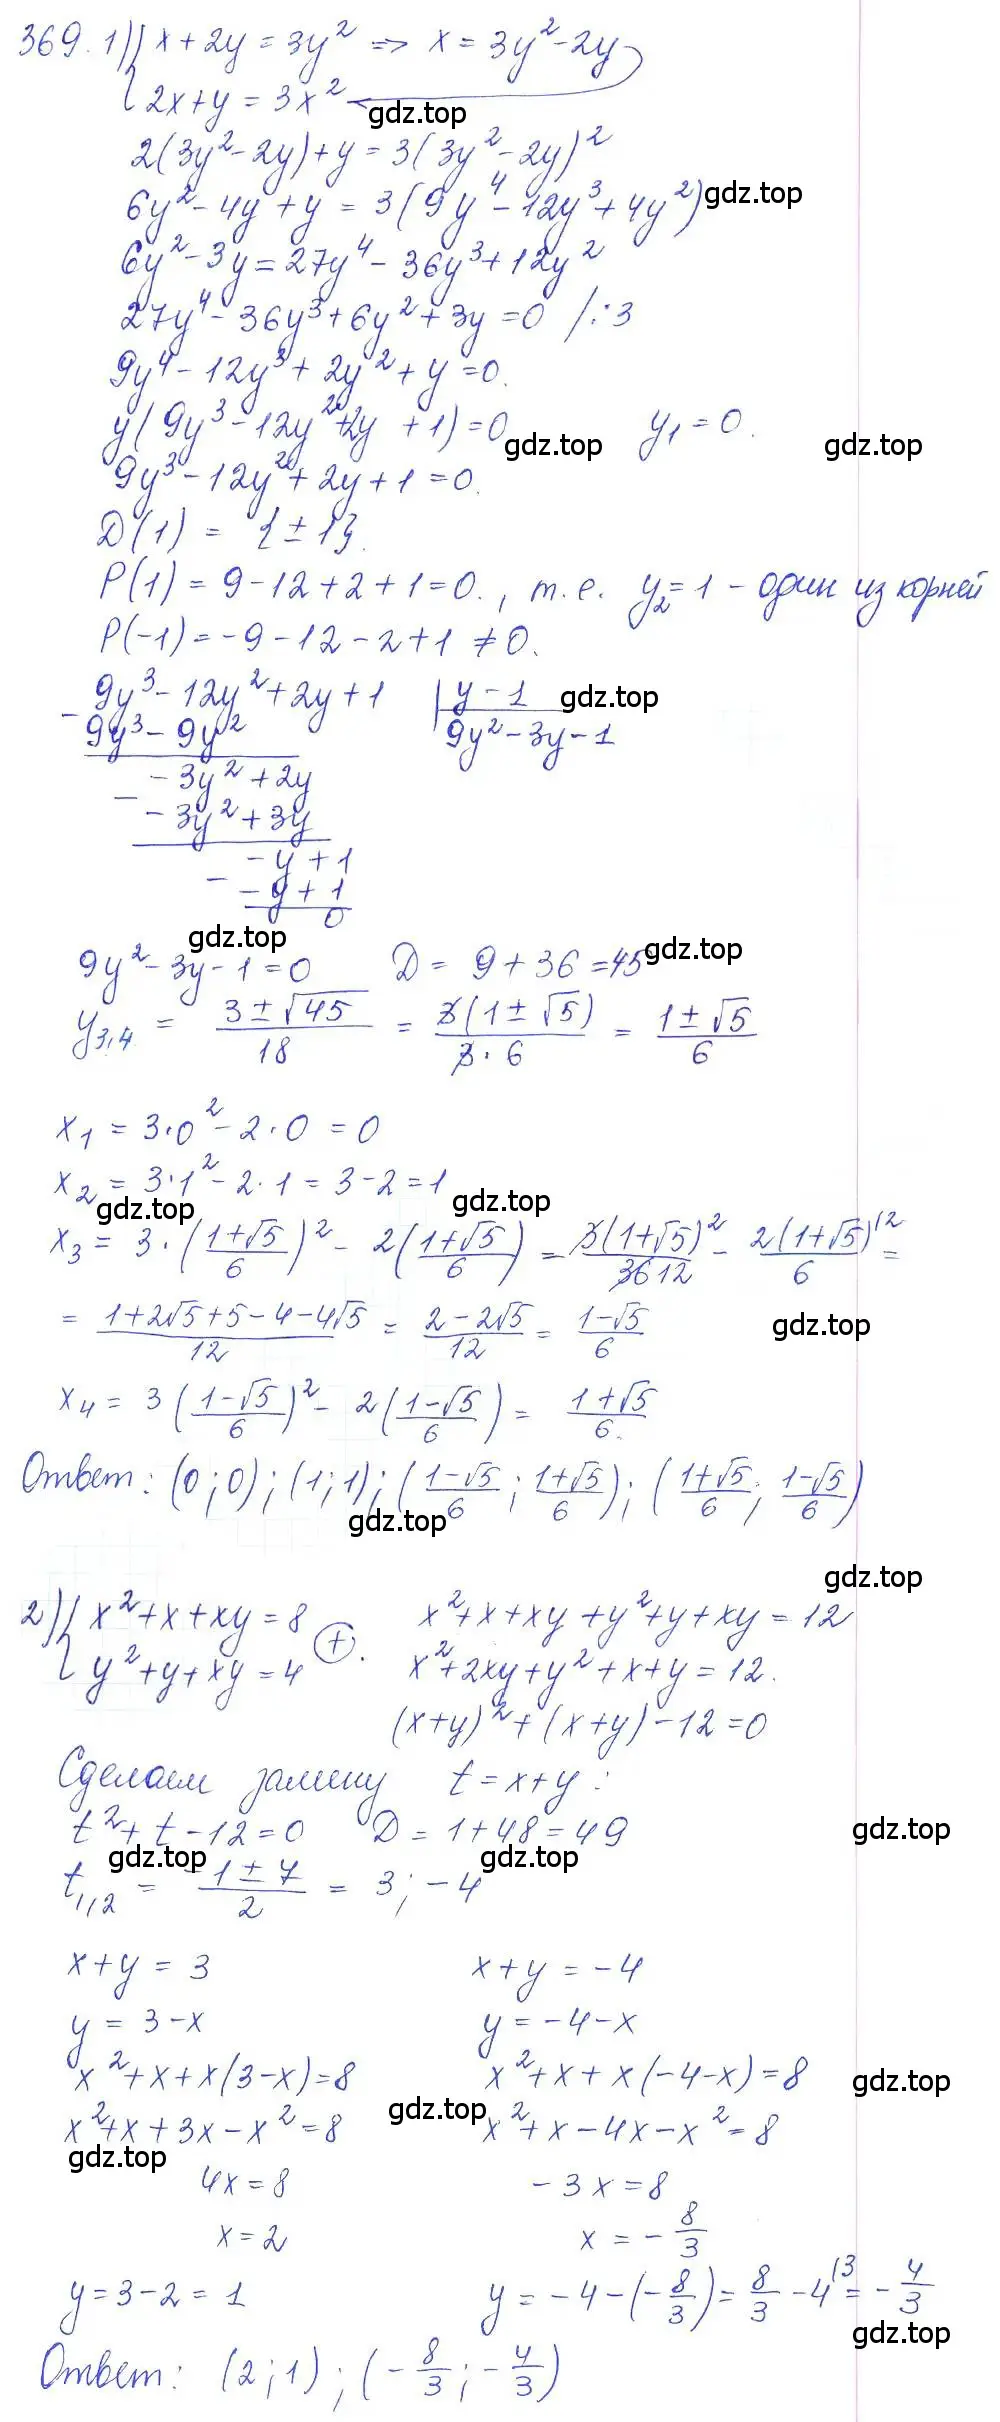 369. 1) { x + 2y = 3y² => x = 3y² - 2y
{ 2x + y = 3x²
gdz.top
2(3y² - 2y) + y = 3(3y² - 2y)²
6y² - 4y + y = 3(9y⁴ - 12y³ + 4y²) gdz.top
6y² - 3y = 27y⁴ - 36y³ + 12y²
27y⁴ - 36y³ + 6y² + 3y = 0 /:3
9y⁴ - 12y³ + 2y² + y = 0.
y(9y³ - 12y² + 2y + 1) = 0 gdz.top y₁ = 0. gdz.top
9y³ - 12y² + 2y + 1 = 0.
D(1) = {±1}.
P(1) = 9 - 12 + 2 + 1 = 0., т.е. y₂ = 1 - один из корней
P(-1) = -9 - 12 - 2 + 1 ≠ 0.
- 9y³ - 12y² + 2y + 1 | y - 1 gdz.top
9y³ - 9y² 9y² - 3y - 1
- -3y² + 2y
-3y² + 3y
- -y + 1
-y + 1
0
gdz.top
9y² - 3y - 1 = 0 D = 9 + 36 = 45 gdz.top
y₃,₄ = (3 ± √45)/18 = 3(1 ± √5)/(3 · 6) = (1 ± √5)/6
x₁ = 3·0² - 2·0 = 0
x₂ = 3·1² - 2·1 = 3 - 2 = 1
gdz.top gdz.top
x₃ = 3·((1+√5)/6)² - 2((1+√5)/6) = 3(1+√5)²/36 12 - 2(1+√5)/6 (2 =
= (1+2√5+5-4-4√5)/12 = (2-2√5)/12 = (1-√5)/6 gdz.top
x₄ = 3((1-√5)/6)² - 2((1-√5)/6) = (1+√5)/6.
Ответ: (0; 0); (1; 1); ((1-√5)/6; (1+√5)/6); ((1+√5)/6; (1-√5)/6)
gdz.top
gdz.top
2) { x² + x + xy = 8 (+). x² + x + xy + y² + y + xy = 12
{ y² + y + xy = 4 x² + 2xy + y² + x + y = 12.
(x+y)² + (x+y) - 12 = 0
Сделаем замену t = x + y :
t² + t - 12 = 0 D = 1 + 48 = 49 gdz.top
gdz.top gdz.top
t₁,₂ = (-1 ± 7)/2 = 3; -4
x + y = 3 x + y = -4
y = 3 - x y = -4 - x
x² + x + x(3 - x) = 8 x² + x + x(-4 - x) = 8 gdz.top
x² + x + 3x - x² = 8 gdz.top x² + x - 4x - x² = 8
gdz.top
4x = 8 -3x = 8
x = 2 x = -8/3
y = 3 - 2 = 1 y = -4 - (-8/3) = 8/3 - 4 (3 = -4/3
gdz.top
Ответ: (2; 1); (-8/3; -4/3)